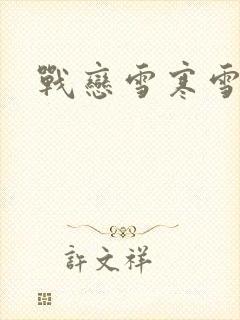 戰戀雪寒雪
許文祥